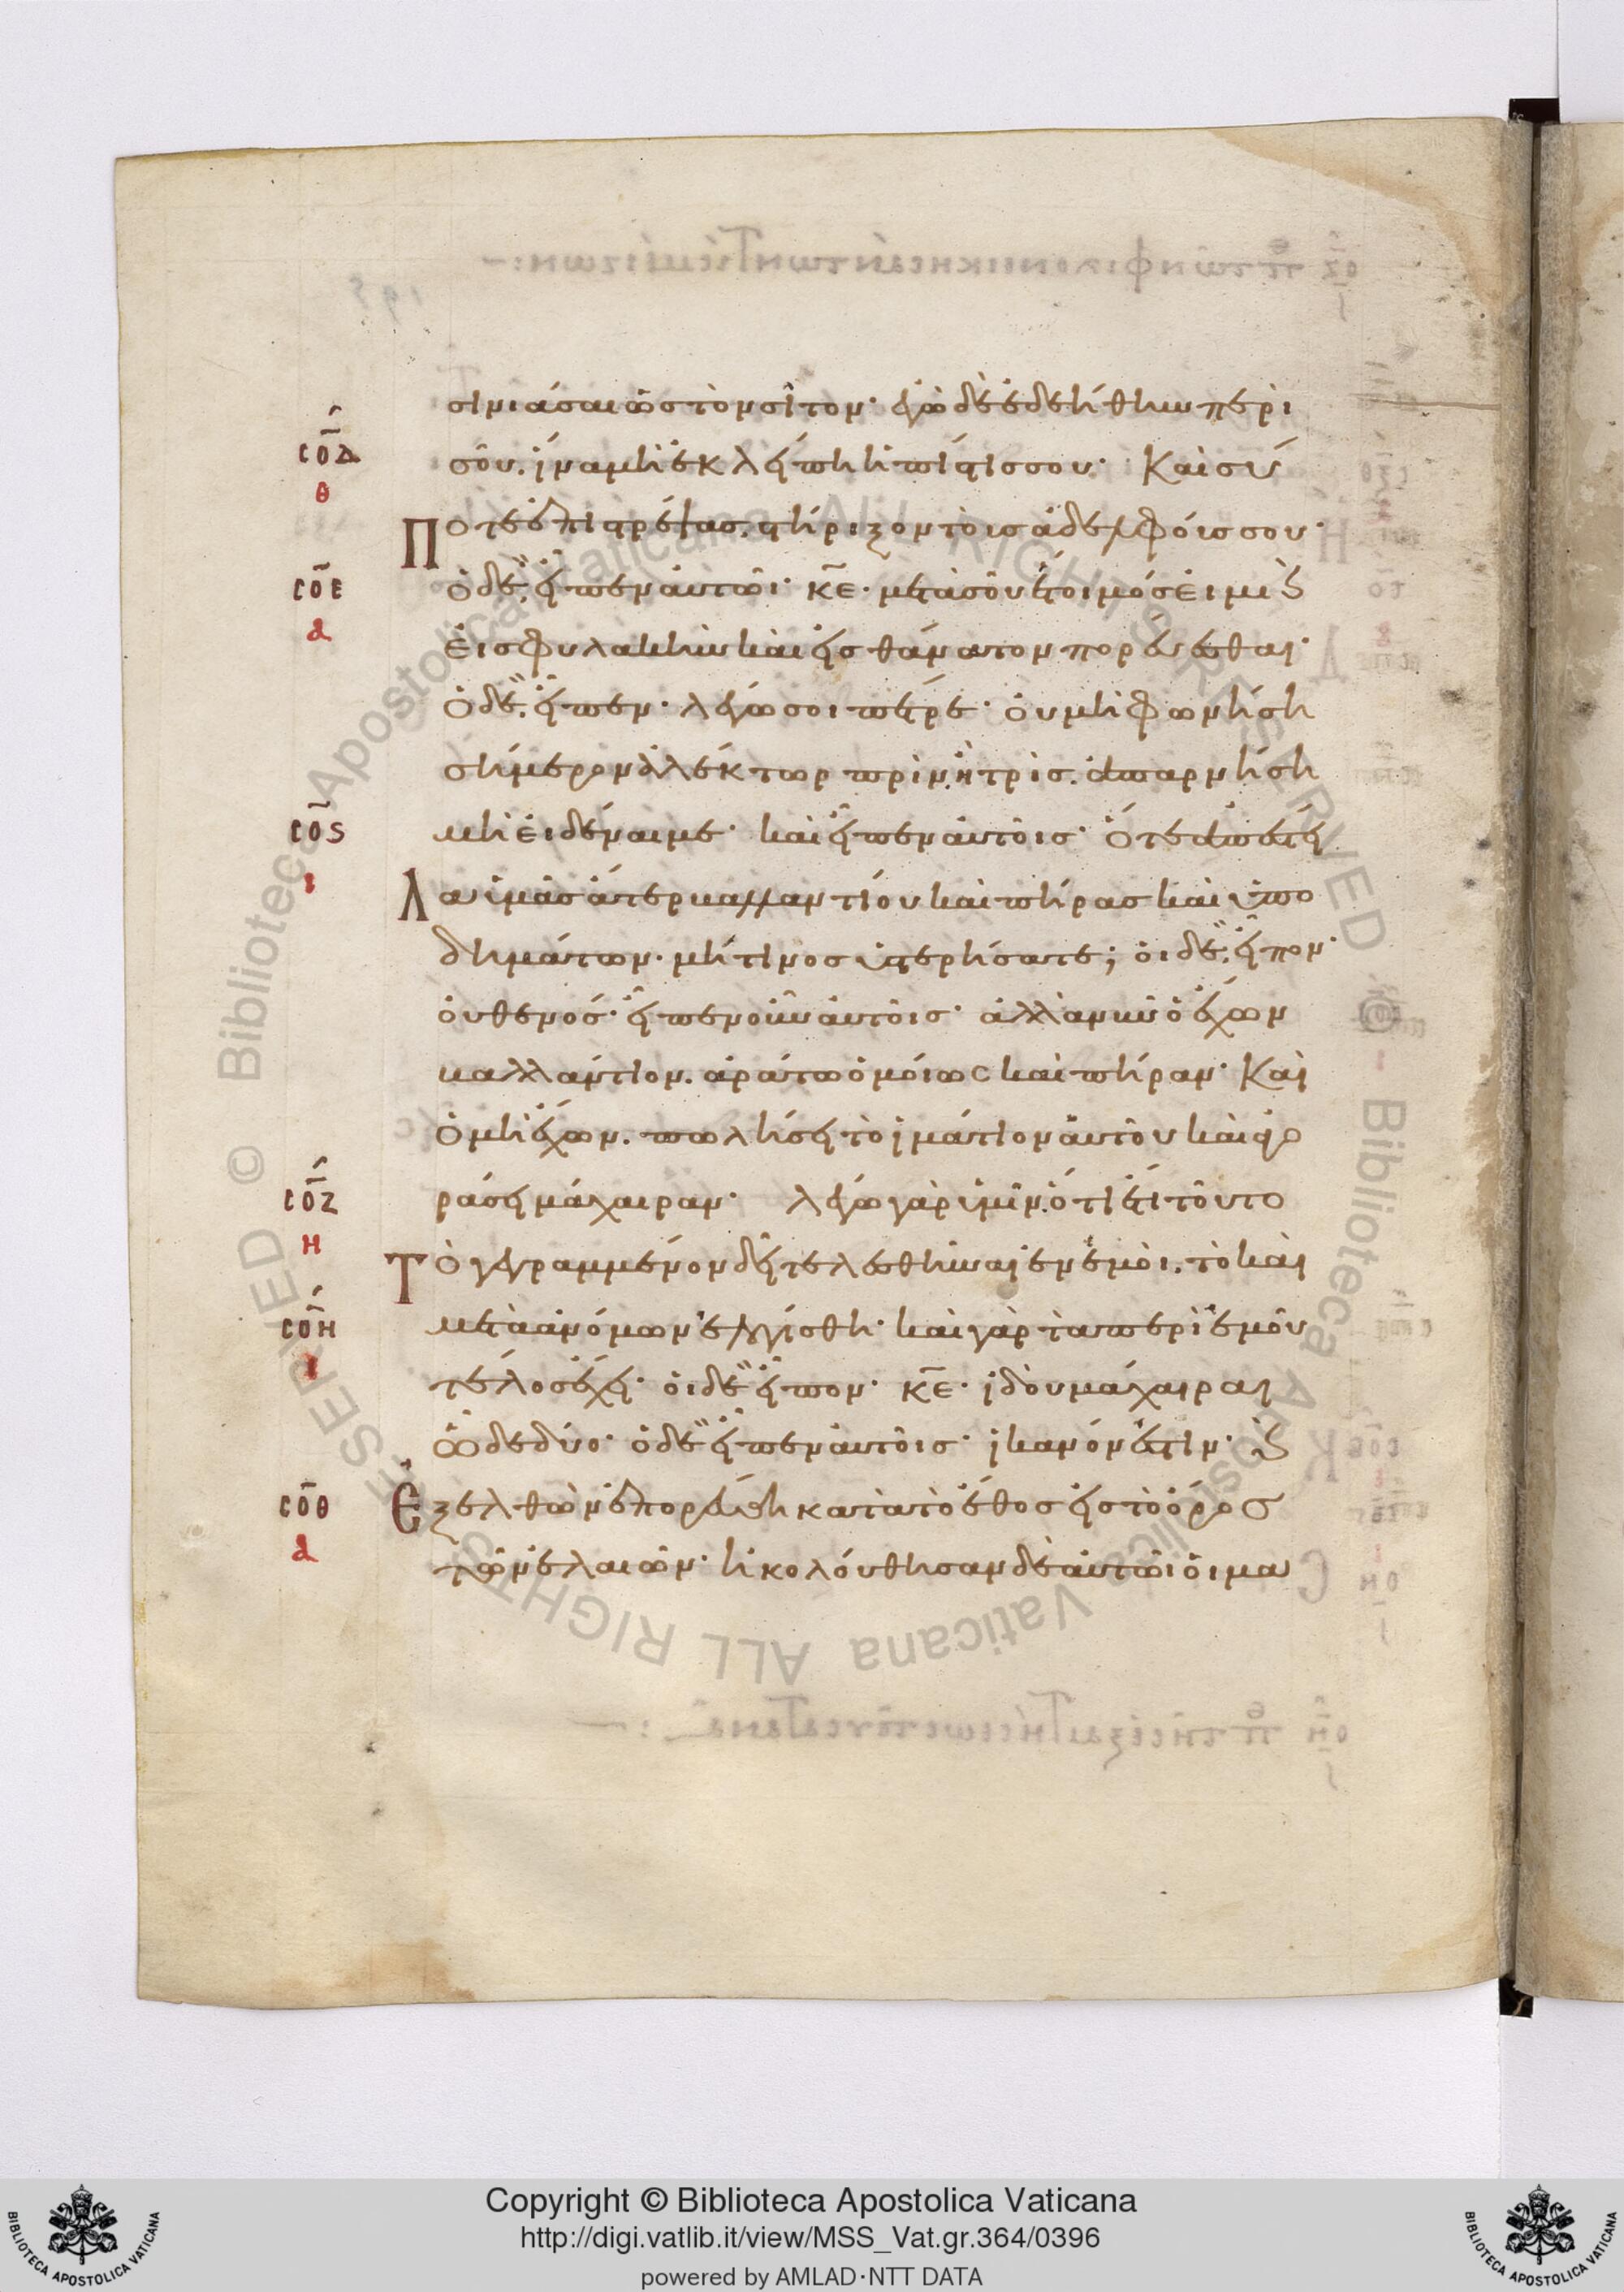 σινιάσαι ὡς τὸν σῖτον· ἐγὼ δὲ ἐδεήθην περὶ
σοῦ. ἵνα μὴ ἐκλείπηι ἡ πίστις σου· Καὶ σύ
ποτε ἐπιστρέψας. στήριξον τοὺς ἀδελφούς σου·
ὁ δὲ. εἶπεν αὐτῶι· κ̅ε̅· μετὰ σοῦ ἕτοιμός εἰμι ϗ
εἰς φυλακὴν καὶ εἰς θάνατον πορεύεσθαι·
ὁ δὲ. εἶπεν· λέγω σοι πέτρε· οὐ μὴ φωνήση
σήμερον ἀλέκτωρ πρὶν ἢ τρὶς. ἀπαρνήση
μὴ εἰδέναι με· καὶ εἶπεν αὐτοῖς· Ὅτε ἀπέστει
λα ὑμᾶς ἄτερ βαλλαντίου καὶ πήρας καὶ ὑπο
δημάτων. μή τινος ὑστερήσατε; οἱ δὲ. εἶπον·
οὐθενός· εἶπεν οὖν αὐτοῖς· ἀλλὰ νῦν ὁ ἔχων
βαλλάντιον. ἀράτω ὁμοίως καὶ πήραν· Καὶ
ὁ μὴ ἔχων. πωλήσει τὸ ἱμάτιον αὐτοῦ καὶ ἀγο
ράσει μάχαιραν· λέγω γὰρ ὑμῖν. ὅτι ἔτι τοῦτο
τὸ γεγραμμένον δεῖ τελεσθῆναι ἐν ἐμοὶ. τὸ καὶ
μετὰ ἀνόμων ἐλογίσθη· καὶ γὰρ τὰ περὶ ἐμοῦ
τέλος ἔχει· οἱ δὲ εἶπον· κ̅ε̅· ἰδοὺ μάχαιραι
ὧδε δύο· ὁ δὲ εἶπεν αὐτοῖς· ἱκανόν ἐστιν· ϗ
ἐξελθὼν ἐπορεύθη κατὰ τὸ ἔθος εἰς τὸ ὄρος
τῶν ἐλαιῶν· ἠκολούθησαν δὲ αὐτῶι οἱ μα
ϹΟΔ
Θ
ϹΟΕ
Α
ϹΟϚ
Ι
ϹΟΖ
Η
ϹΟΗ
Ι
ϹΟΘ
Α
© Biblioteca Apostolica Vaticana ALL RIGHTS RESERVED
© Biblioteca Apostolica Vaticana ALL RIGHTS RESERVED
Copyright © Biblioteca Apostolica Vaticana
http://digi.vatlib.it/view/MSS_Vat.gr.364/0396
powered by AMLAD·NTT DATA
BIBLIOTECA APOSTOLICA VATICANA
BIBLIOTECA APOSTOLICA VATICANA